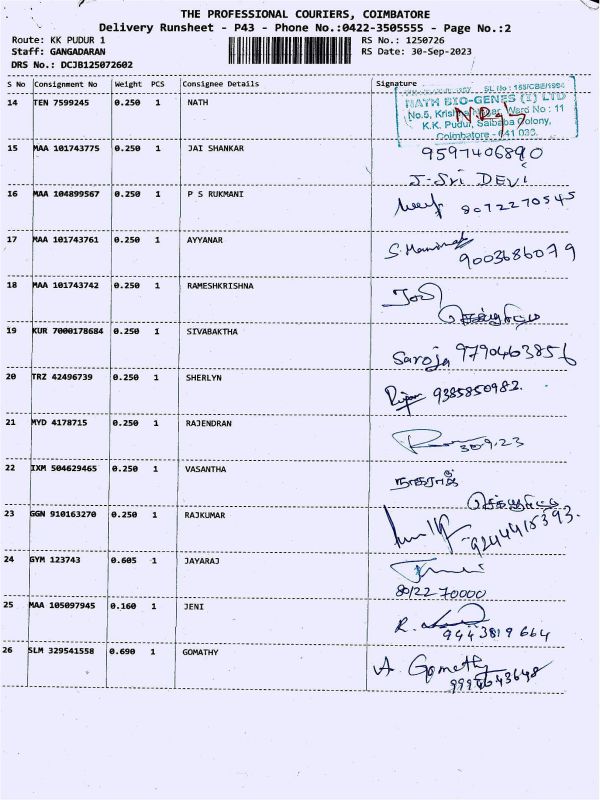 THE PROFESSIONAL COURIERS, COIMBATORE
Delivery Runsheet - P43 - Phone No.:0422-3505555 - Page No.:2
Route: KK PUDUR 1 RS No.: 1250726
Staff: GANGADARAN RS Date: 30-Sep-2023
DRS No.: DCJB125072602
S No Consignment No Weight PCS Consignee Details Signature
14 TEN 7599245 0.250 1 NATH
NATH BIO-GENES (I) LTD
No.5, Krishna Nagar, Ward No : 11
K.K. Pudur, Saibaba Colony,
Coimbatore - 641 038.
15 MAA 101743775 0.250 1 JAI SHANKAR 9597406890
J-Sri DEVi
16 MAA 104899567 0.250 1 P S RUKMANI 8072270545
17 MAA 101743761 0.250 1 AYYANAR 9003686079
18 MAA 101743742 0.250 1 RAMESHKRISHNA
19 KUR 7000178684 0.250 1 SIVABAKTHA Saroja 9790463856
20 TRZ 42496739 0.250 1 SHERLYN 9385850982.
21 MYD 4178715 0.250 1 RAJENDRAN 309.23
22 IXM 504629465 0.250 1 VASANTHA
23 GGN 910163270 0.250 1 RAJKUMAR 9244415393.
24 GYM 123743 0.605 1 JAYARAJ
80122 70000
25 MAA 105097945 0.160 1 JENI R.
9443819664
26 SLM 329541558 0.690 1 GOMATHY A. Gomathy